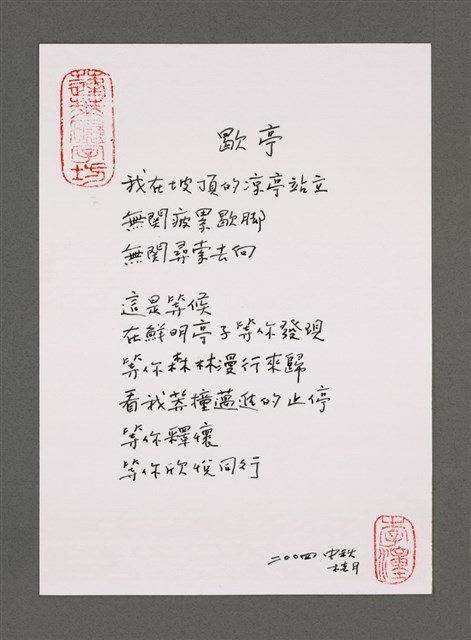 歇亭
我在坡頂的凉亭站立
無関疲累歇脚
無関尋索去向
這是等候
在鮮明亭子等你發現
等你森林漫行來歸
看我莽撞邁進的止停
等你釋懷
等你欣悅同行
二〇〇四 中秋
桂月
李潼